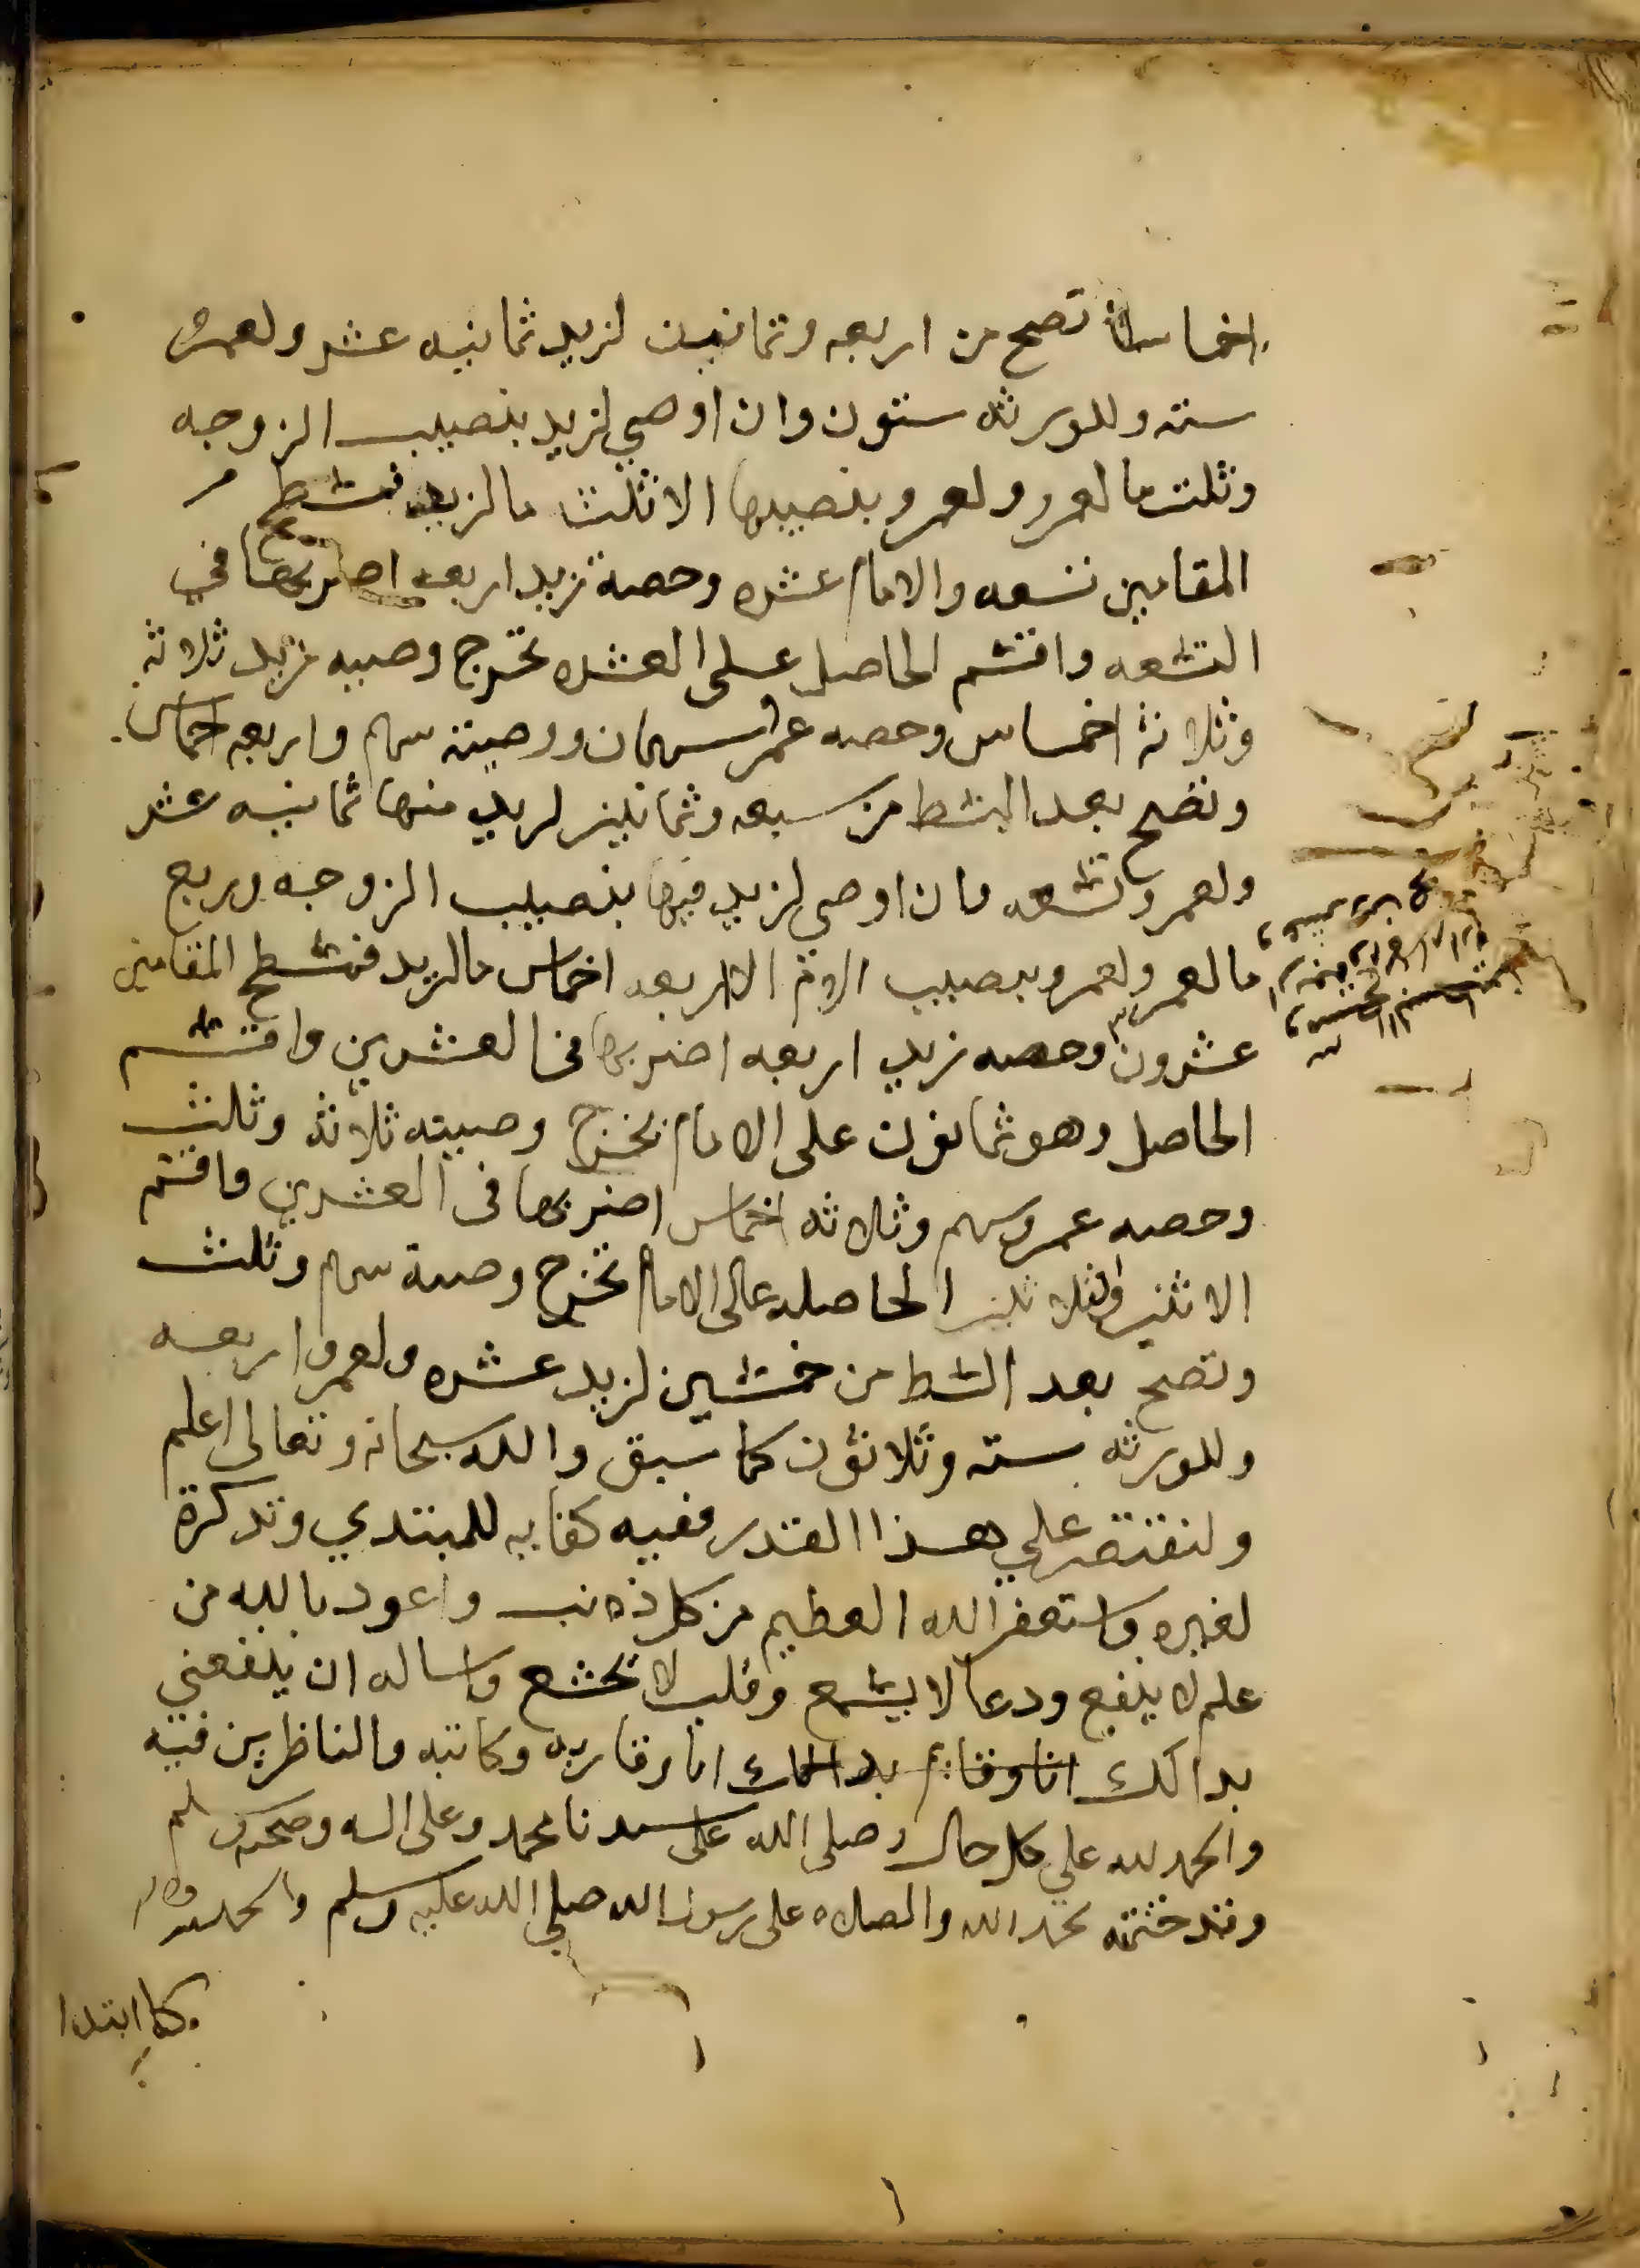 اخماسا تصح من اربعه وثمانين لزيد ثمانيه عشر ولعمرو
سته وللورثه ستون وان اوصي لزيد بنصيب الزوجه
وثلث ما لعمرو ولعمرو بنصيبها الا ثلث ما لزيد فمسطح
المقامين تسعه والامام عشره وحصة زيد اربعه اضربها في
التسعه واقسم الحاصل على العشره تخرج وصيه زيد ثلاثه
وثلاثة اخماس وحصه عمرو سهمان ووصيته سهم واربعه اخماس
وتصح بعد البسط من سبعه وثمانين لزيد منها ثمانيه عشر
ولعمرو تسعه وان اوصي لزيد فيها بنصيب الزوجه وربع
ما لعمرو ولعمرو بنصيب الام الا اربعه اخماس ما لزيد فمسطح المقامين
عشرون وحصه زيد اربعه اضربها في العشرين واقسم
الحاصل وهو ثمانون على الامام تخرج وصيته ثلاثة وثلث
وحصه عمرو سهم وثلاثه اخماس اضربها في العشرين واقسم
الاثنين وثلاثين الحاصله على الامام تخرج وصية سهم وثلث
وتصح بعد البسط من خمسين لزيد عشره ولعمرو اربعه
وللورثه سته وثلاثون كما سبق والله سبحانه وتعالى اعلم
ولنقتصر علي هذا القدر ففيه كفايه للمبتدي وتذكرة
لغيره واستغفر الله العظيم من كل ذنب واعوذ بالله من
علم لا ينفع ودعا لا يسمع وقلب لا يخشع واساله ان ينفعني
بذلك انا وقا بذلك انا وقاريه وكاتبه والناظرين فيه
والحمد لله علي كل حال وصلى الله على سيدنا محمد وعلى اله وصحبه وسلم
وقد ختمته بحمد الله والصلاه على رسول الله صلي الله عليه وسلم والحمد لله
كما ابتدا